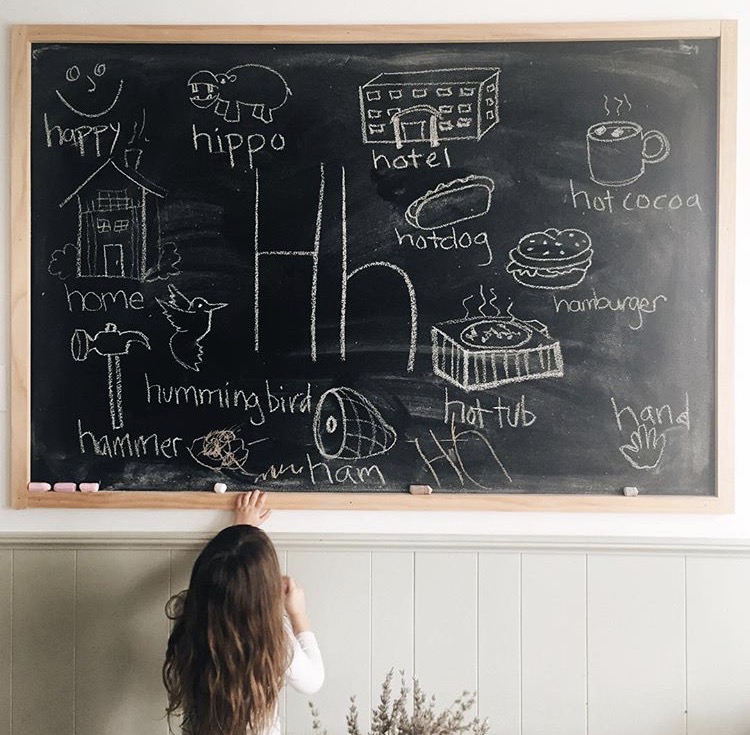 happy
hippo
hotel
hot cocoa
Hh
hotdog
home
hamburger
hummingbird
hot tub
hand
hammer
ham
Hh